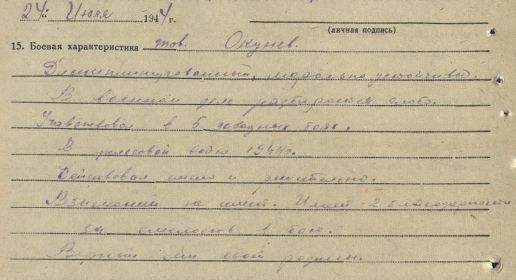 24го Июля 1944 г.
(личная подпись)
15. Боевая характеристика тов. Окунев.
Дисциплинированный, морально устойчивый.
В военном деле разбирается слабо.
Участвовал в 5 боях.
В войне 1944 г.
Действовал смело и решительно.
Взысканий не имеет. Имеет 2 благодарности
за смелость в бою.
сын своей родины.